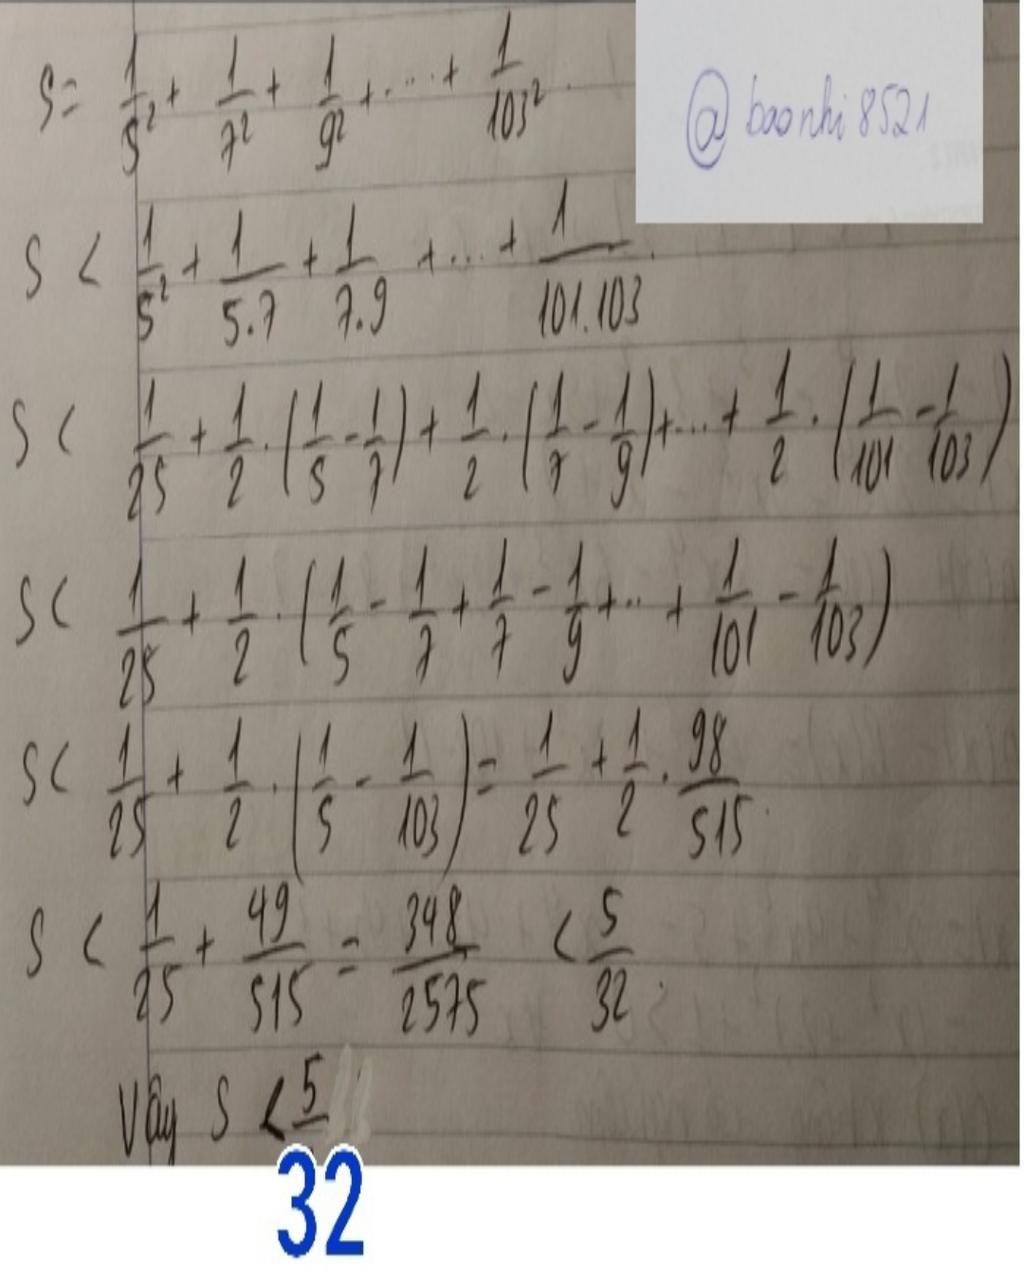 S = 1/5² + 1/7² + 1/9² + ..... + 1/103².
@baonhi8521
S < 1/5² + 1/5.7 + 1/7.9 + ... + 1/101.103.
S < 1/25 + 1/2 . (1/5 - 1/7) + 1/2 . (1/7 - 1/9) + ... + 1/2 . (1/101 - 1/103)
S < 1/25 + 1/2 . (1/5 - 1/7 + 1/7 - 1/9 + .. + 1/101 - 1/103)
S < 1/25 + 1/2 . (1/5 - 1/103) = 1/25 + 1/2 . 98/515.
S < 1/25 + 49/515 = 348/2575 < 5/32.
Vậy S < 5/32